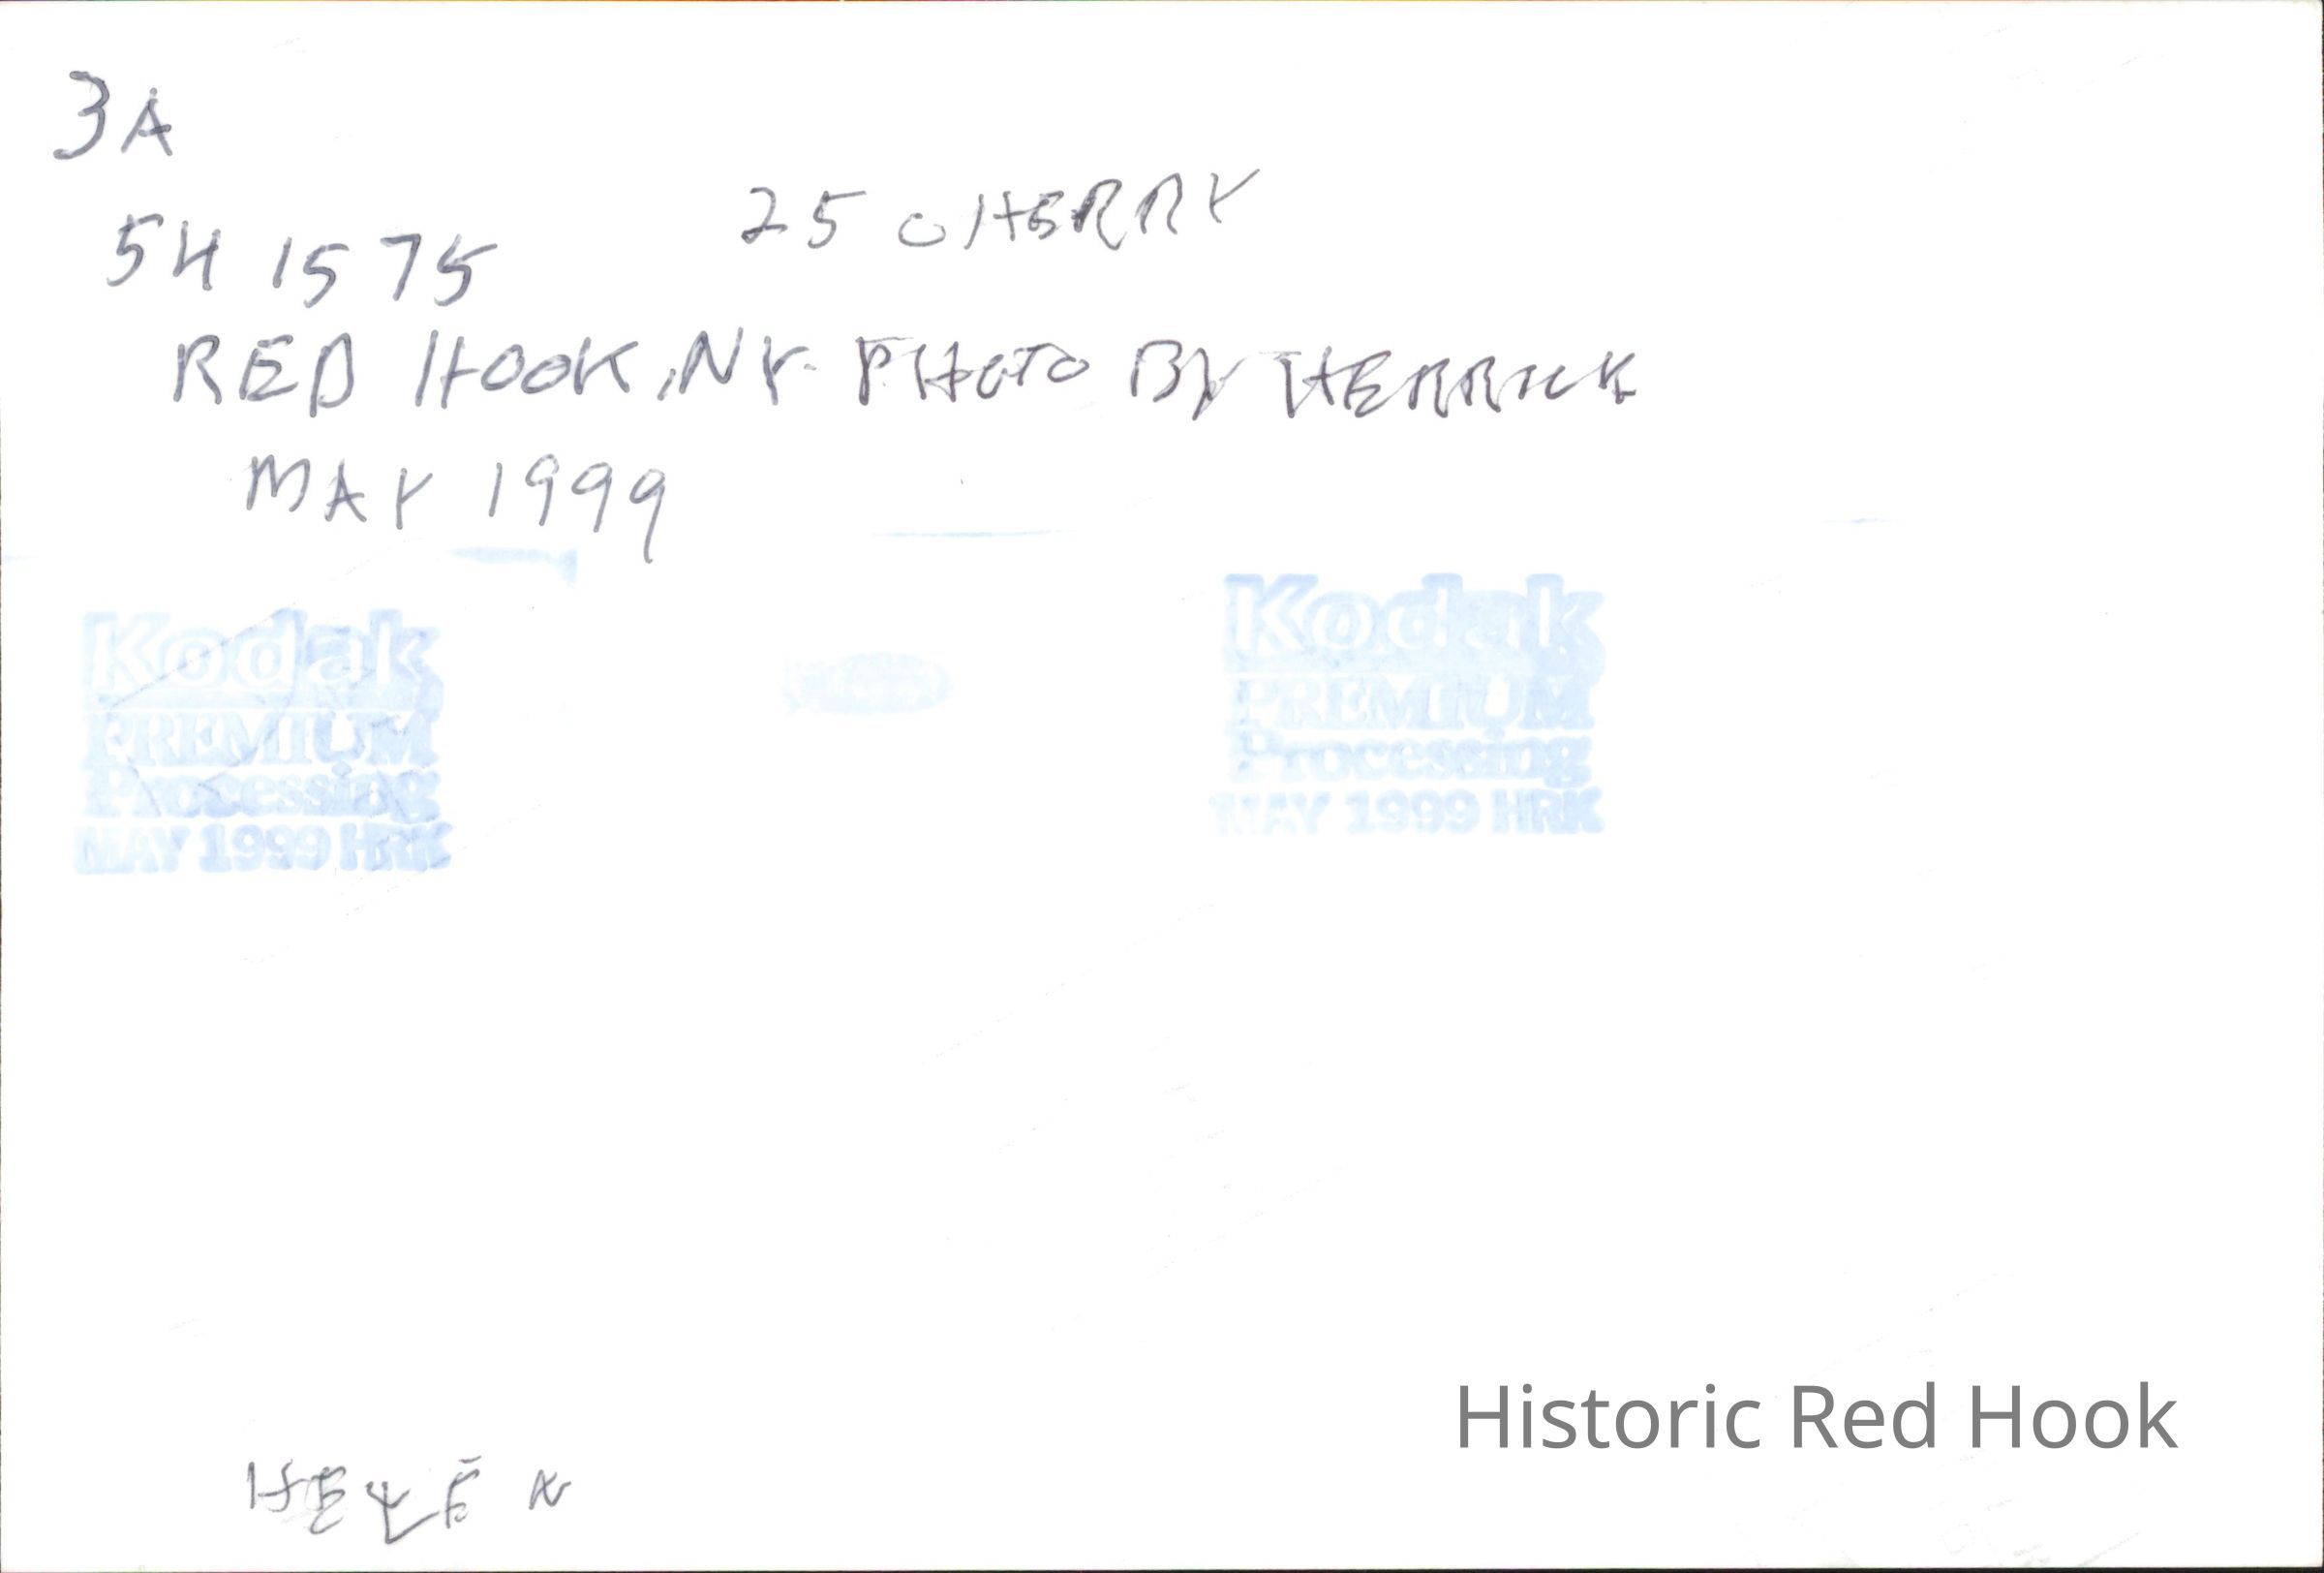 3A
25 CHERRY
5H 1575
RED HOOK, NY. PHOTO BY HERRICK
MAY 1999
Kodak Kodak
PREMIUM PREMIUM
Processing Processing
MAY 1999 HRK MAY 1999 HRK
Historic Red Hook